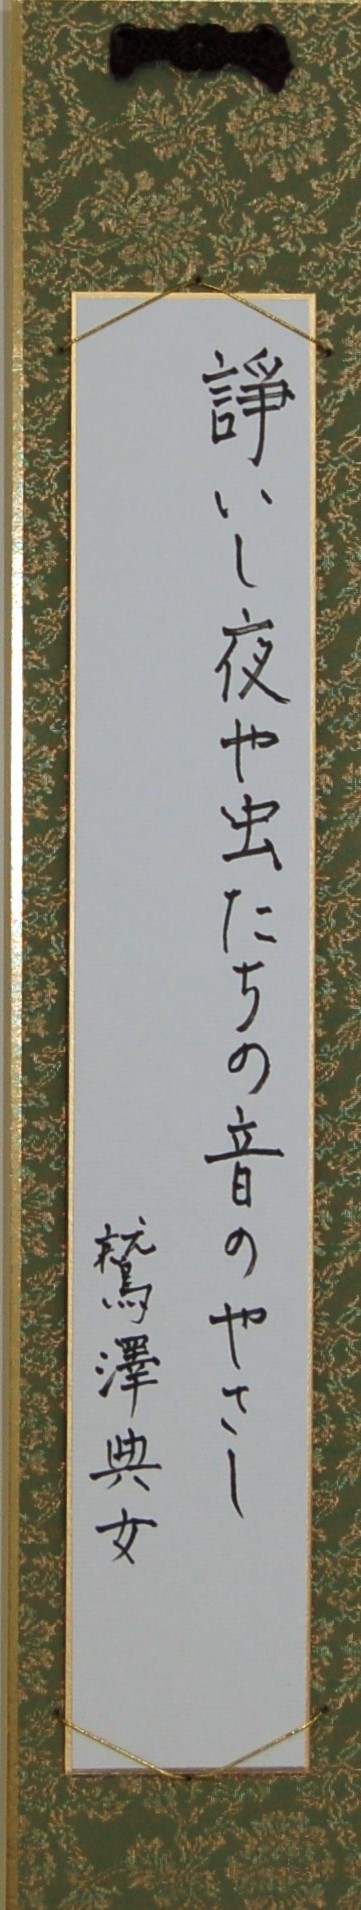 諍いし夜や虫たちの音のやさし
鷲澤典女